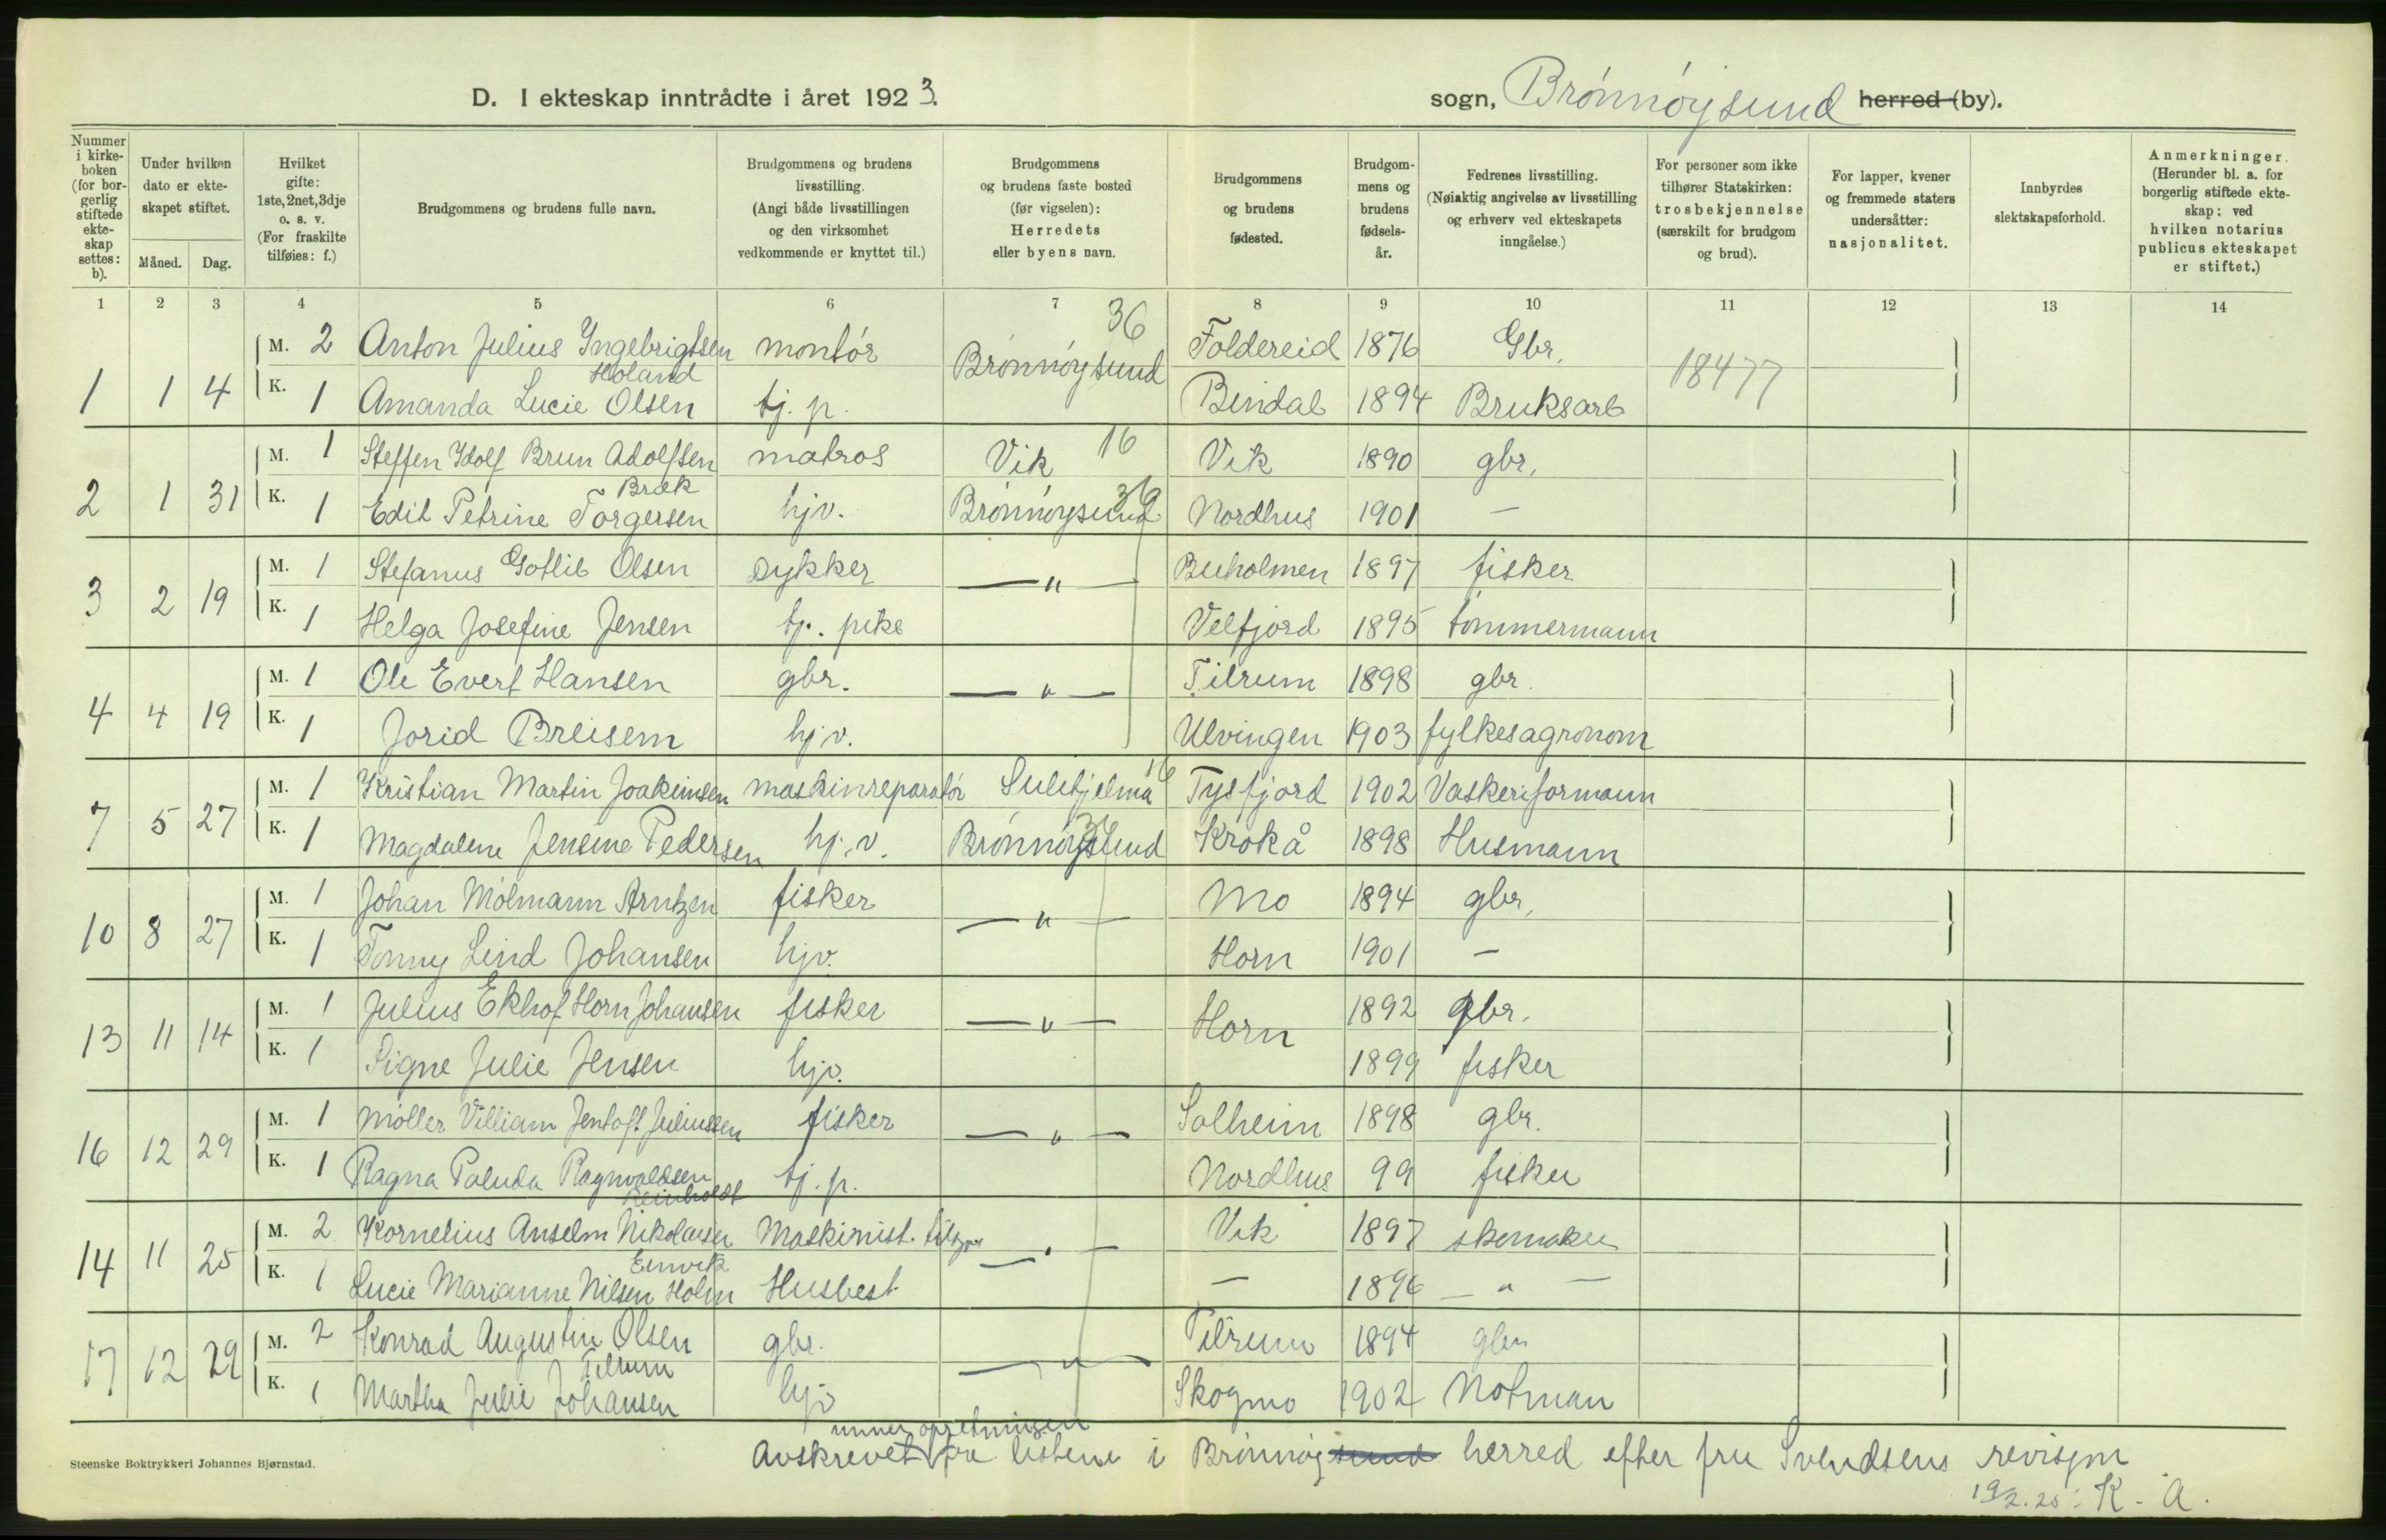 D. I ekteskap inntrådte i året 1923.
sogn, Brønnøysund herred (by).
Nummer i kirkeboken (for borgerlig stiftede ekteskap settes: b).
Under hvilken dato er ekteskapet stiftet.
Måned. Dag.
Hvilket gifte: 1ste, 2net, 3dje o. s. v. (For fraskilte tilføies: f.)
Brudgommens og brudens fulle navn.
Brudgommens og brudens livsstilling. (Angi både livsstillingen og den virksomhet vedkommende er knyttet til.)
Brudgommens og brudens faste bosted (før vigselen): Herredets eller byens navn.
Brudgommens og brudens fødested.
Brudgommens og brudens fødselsår.
Fedrenes livsstilling. (Nøiaktig angivelse av livsstilling og erhverv ved ekteskapets inngåelse.)
For personer som ikke tilhører Statskirken: trosbekjennelse (særskilt for brudgom og brud).
For lapper, kvener og fremmede staters undersåtter: nasjonalitet.
Innbyrdes slektskapsforhold.
Anmerkninger. (Herunder bl. a. for borgerlig stiftede ekteskap: ved hvilken notarius publicus ekteskapet er stiftet.)
1 2 3 4 5 6 7 8 9 10 11 12 13 14
36
M. 2 Anton Julius Ingebrigtsen montør Brønnøysund Foldereid 1876 Gbr. 18477
Holand
1 1 4 K. 1 Amanda Lucie Olsen tj. p. Bindal 1894 Bruksarb
M. 1 Steffen Idolf Brun Adolfsen matros Vik 16 Vik 1890 gbr.
Bræk
2 1 31 K. 1 Edit Petrine Torgersen hjv. Brønnøysund 36 Nordhus 1901 —
M. 1 Stefanus Gotlib Olsen Dykker — " — Buholmen 1897 fisker
3 2 19 K. 1 Helga Josefine Jensen tj. pike Velfjord 1895 tømmermann
M. 1 Ole Evert Hansen gbr. — " — Tilrum 1898 gbr.
4 4 19 K. 1 Jorid Breisem hjv. Ulvingen 1903 fylkesagronom
M. 1 Kristian Martin Joakimsen maskinreparatør Sulitjelma 16 Tysfjord 1902 Vaskeriformann
7 5 27 K. 1 Magdalene Jensine Pedersen hj.v. Brønnøysund 36 Krokå 1898 Husmann
M. 1 Johan Mølmann Arntzen fisker — " — Mo 1894 gbr.
10 8 27 K. 1 Tonny Lind Johansen hjv. Horn 1901 —
M. 1 Julius Ekhof Horn Johansen fisker — " — Horn 1892 gbr.
13 11 14 K. 1 Signe Julie Jensen hjv. 1899 fisker
M. 1 Møller Villiam Jentoft Juliussen fisker — " — Solheim 1898 gbr.
16 12 29 K. 1 Ragna Paluda Ragnvaldsen tj. p. Nordhus 99 fisker
Reinholdt
M. 2 Kornelius Anselm Nikolaisen Maskinist. — " — Vik 1897 skomaker
14 11 25 K. 1 Lucie Marianne Nilsen Holm Husbest. — 1896 — " —
M. 2 Konrad Augustin Olsen gbr. — " — Tilrum 1894 gbr
Tilrum
17 12 29 K. 1 Martha Julie Johansen hjv Skogmo 1902 Notman
unner opretningen
Avskrevet fra listene i Brønnøysund herred efter fru Svendsens revisjon
19/2.25: K. A.
Steenske Boktrykkeri Johannes Bjørnstad.